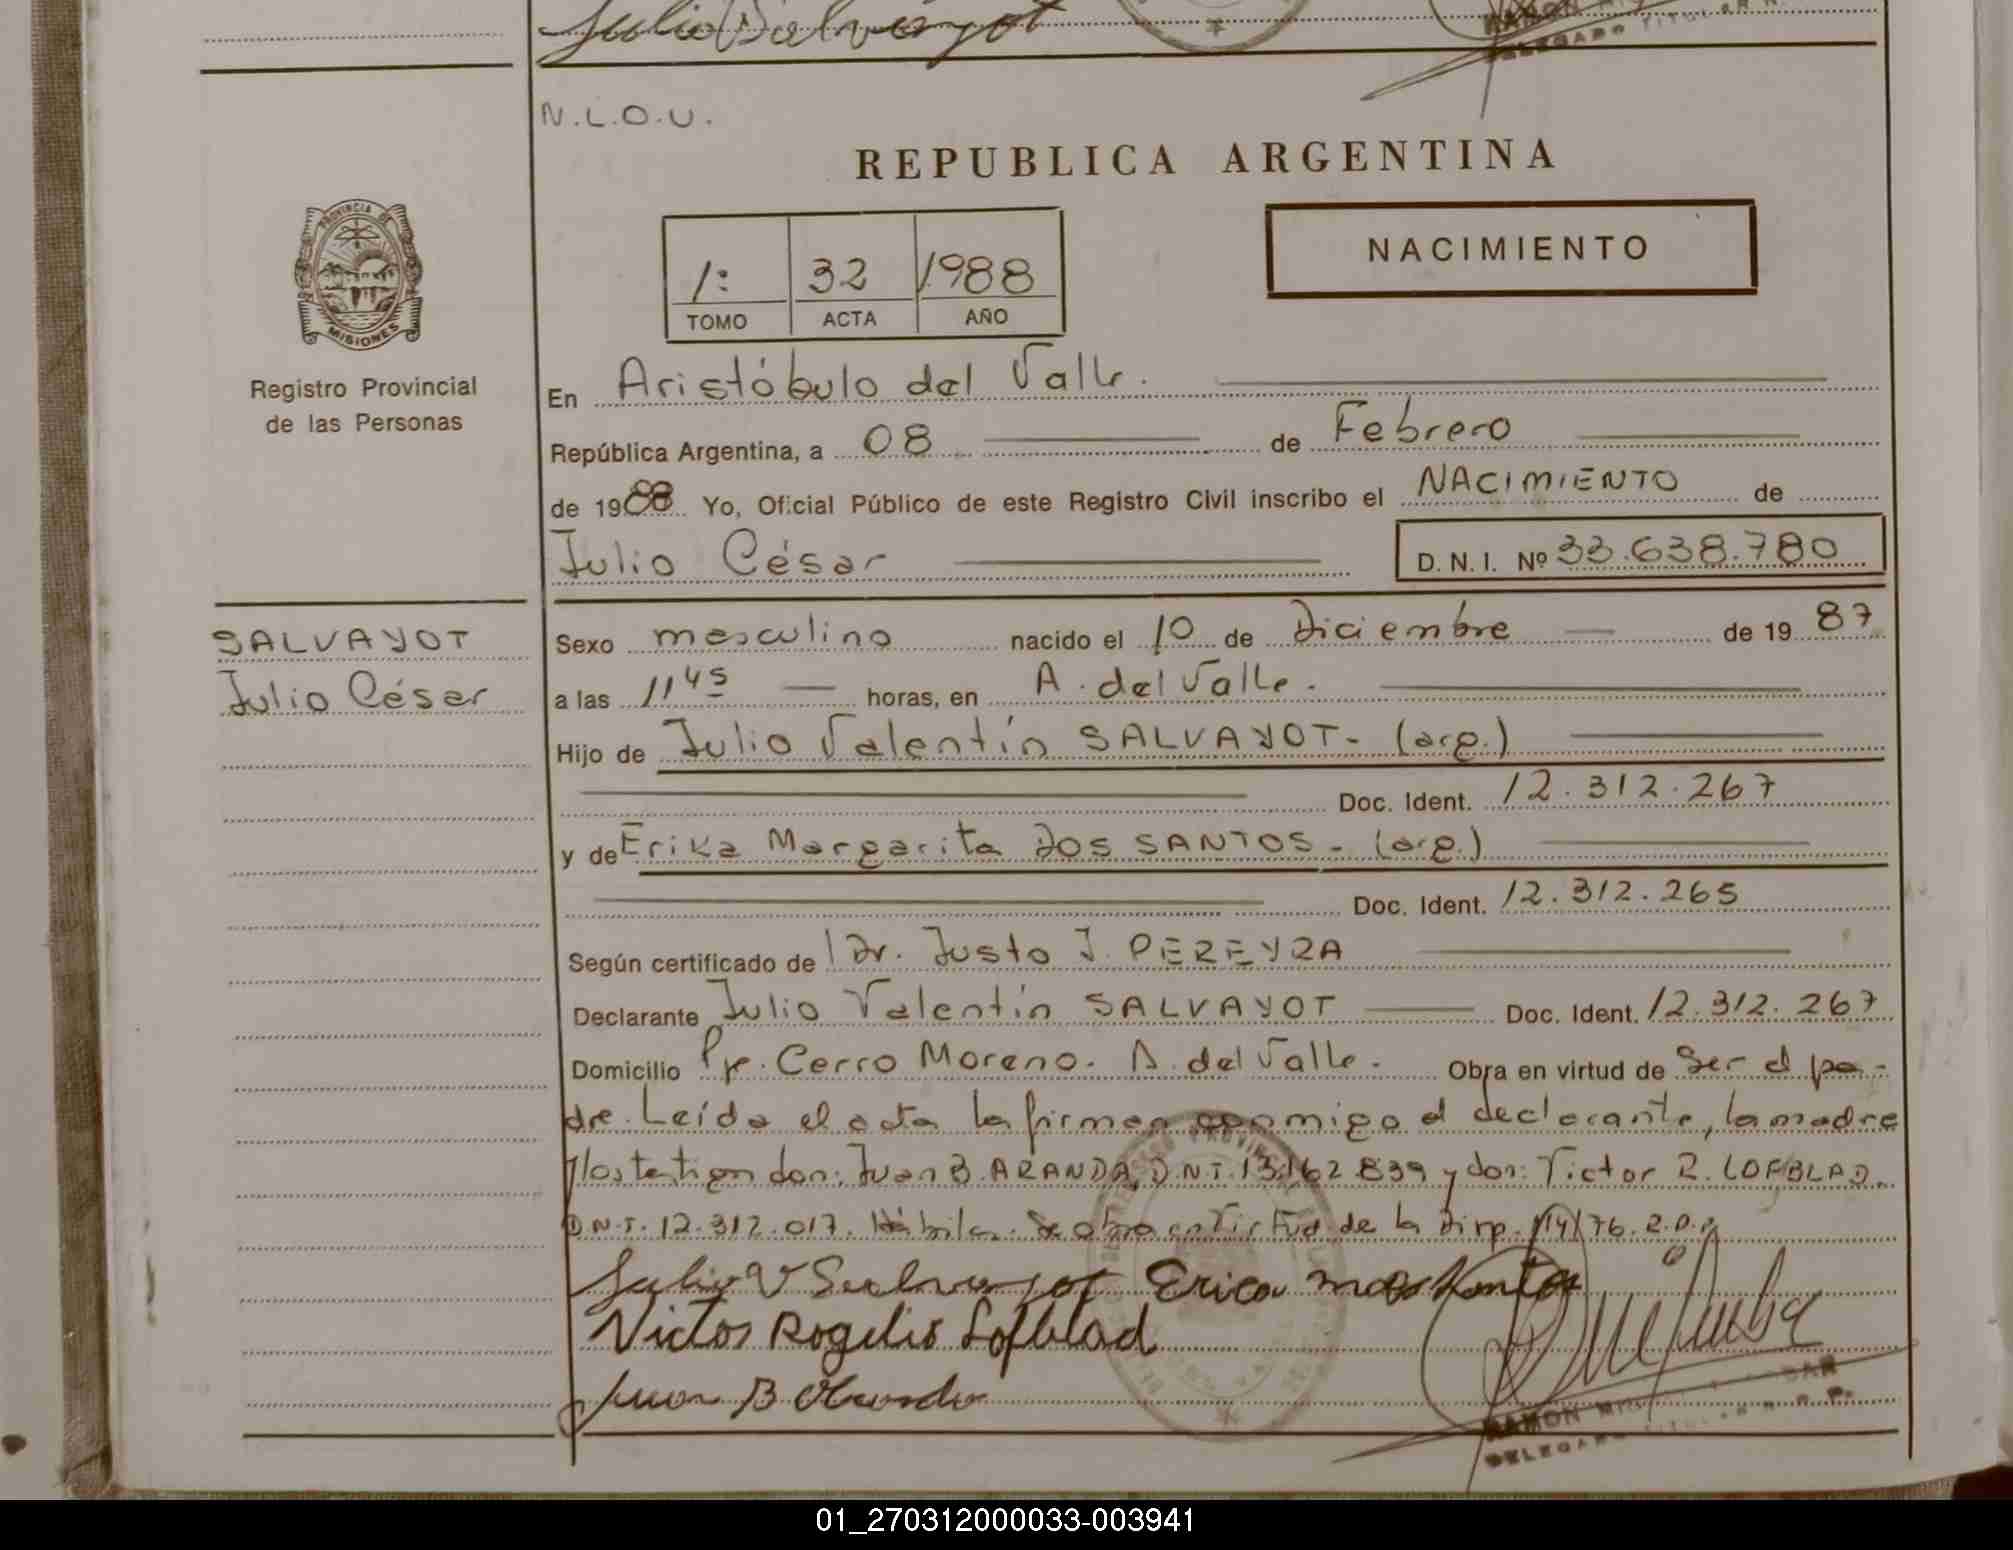 Julio V Salvayot
N.L.O.U.
REPUBLICA ARGENTINA
PROVINCIA DE
MISIONES
NACIMIENTO
1: 32 1988
TOMO ACTA AÑO
Registro Provincial
de las Personas
En Aristóbulo del Valle.
República Argentina, a 08 de Febrero
de 1988 Yo, Oficial Público de este Registro Civil inscribo el NACIMIENTO de
Julio César D. N. I. Nº 33.638.780
SALVAYOT
Julio César
Sexo masculino nacido el 10 de Diciembre de 1987
a las 11 45 horas, en A. del Valle.
Hijo de Julio Valentín SALVAYOT - (arg.)
Doc. Ident. 12.312.267
y de Erika Margarita DOS SANTOS - (arg.)
Doc. Ident. 12.312.265
Según certificado de l Dr. Justo J. PEREYRA
Declarante Julio Valentín SALVAYOT Doc. Ident. 12.312.267
Domicilio Pje. Cerro Moreno. A. del Valle. Obra en virtud de Ser el pa-
dre. Leída el acta la firman conmigo el declarante, la madre
y los testigos don: Juan B. ARANDA, D.N.I. 13.162.839 y don: Victor R. LOFBLAD.
D.N.I. 12.312.017. Hábiles. Se obra en virtud de la Disp. 114/76. R.P.P.
Julio V Salvayot Erica
Victor Rogelio Lofblad
Juan B
RAMON
DELEGADO TITULAR
01_270312000033-003941